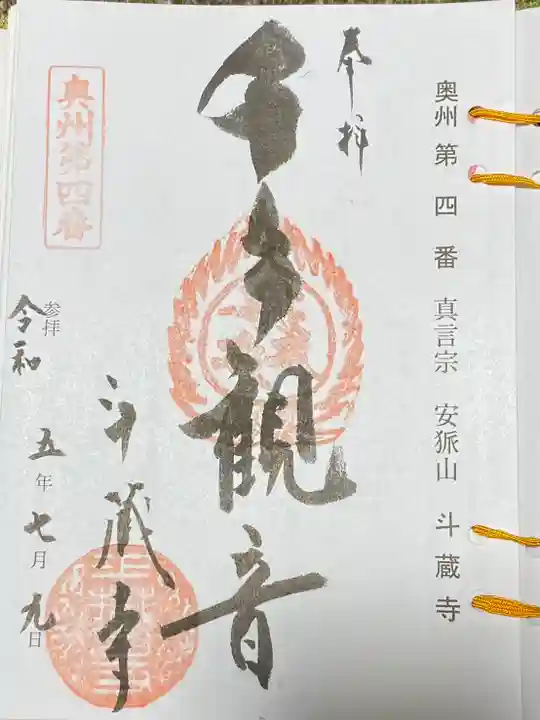 奥州第四番 真言宗 安狐山 斗蔵寺
奉拝
千手観音
斗蔵寺
奥州第四番
参拝
令和五年七月九日